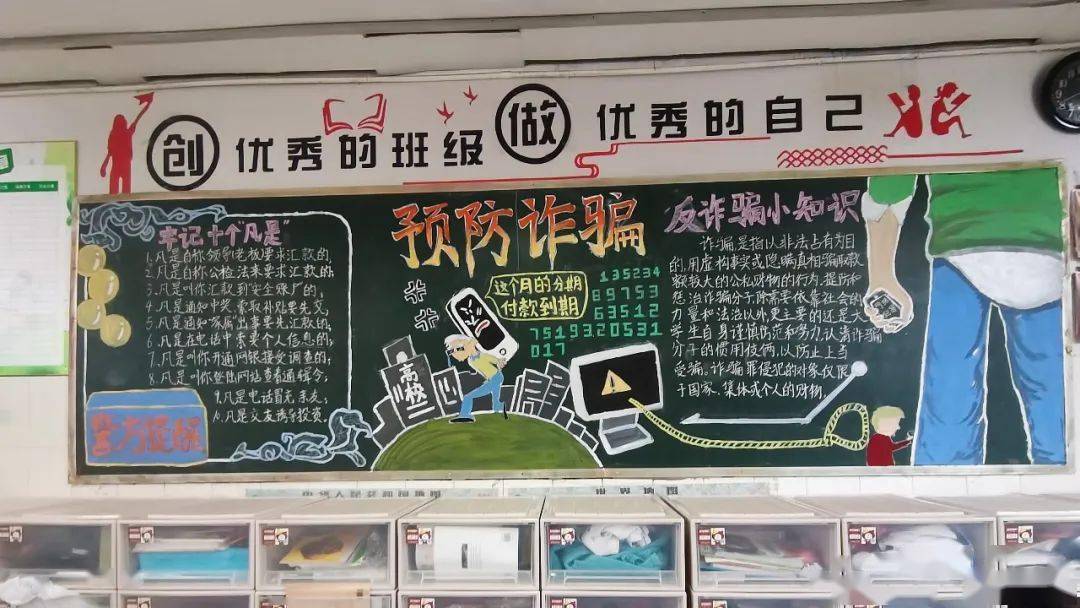 创优秀的班级做优秀的自己
牢记十个"凡是"
1.凡是自称领导(老板)要求汇款的;
2.凡是自称公检法来要求汇款的;
3.凡是叫你汇款到安全账户的;
4.凡是通知中奖、索取补贴要先交
5.凡是通知家属出事要先汇款的;
6.凡是在电话中索要个人信息的;
7.凡是叫你开通网银接受调查的;
8.凡是叫你登陆网站查看通辑令;
9.凡是电话冒充亲友;
10.凡是交友诱导投资.
警方提醒
预防诈骗
这个月的分期
付款到期
135234
89753
63512
7519320531
017
高校
反诈骗小知识
诈骗是指以非法占有为目
的,用虚构事实或隐瞒真相骗取款
额较大的公私财物的行为,提防和
惩治诈骗分子除需要依靠社会的
力量和法治以外,更主要的还是大
学生自身谨慎防范和努力,认清诈骗
分子的惯用伎俩,以防止上当
受骗.诈骗罪侵犯的对象仅限
于国家、集体或个人的财物,
中华人民共和国地图
世界地图